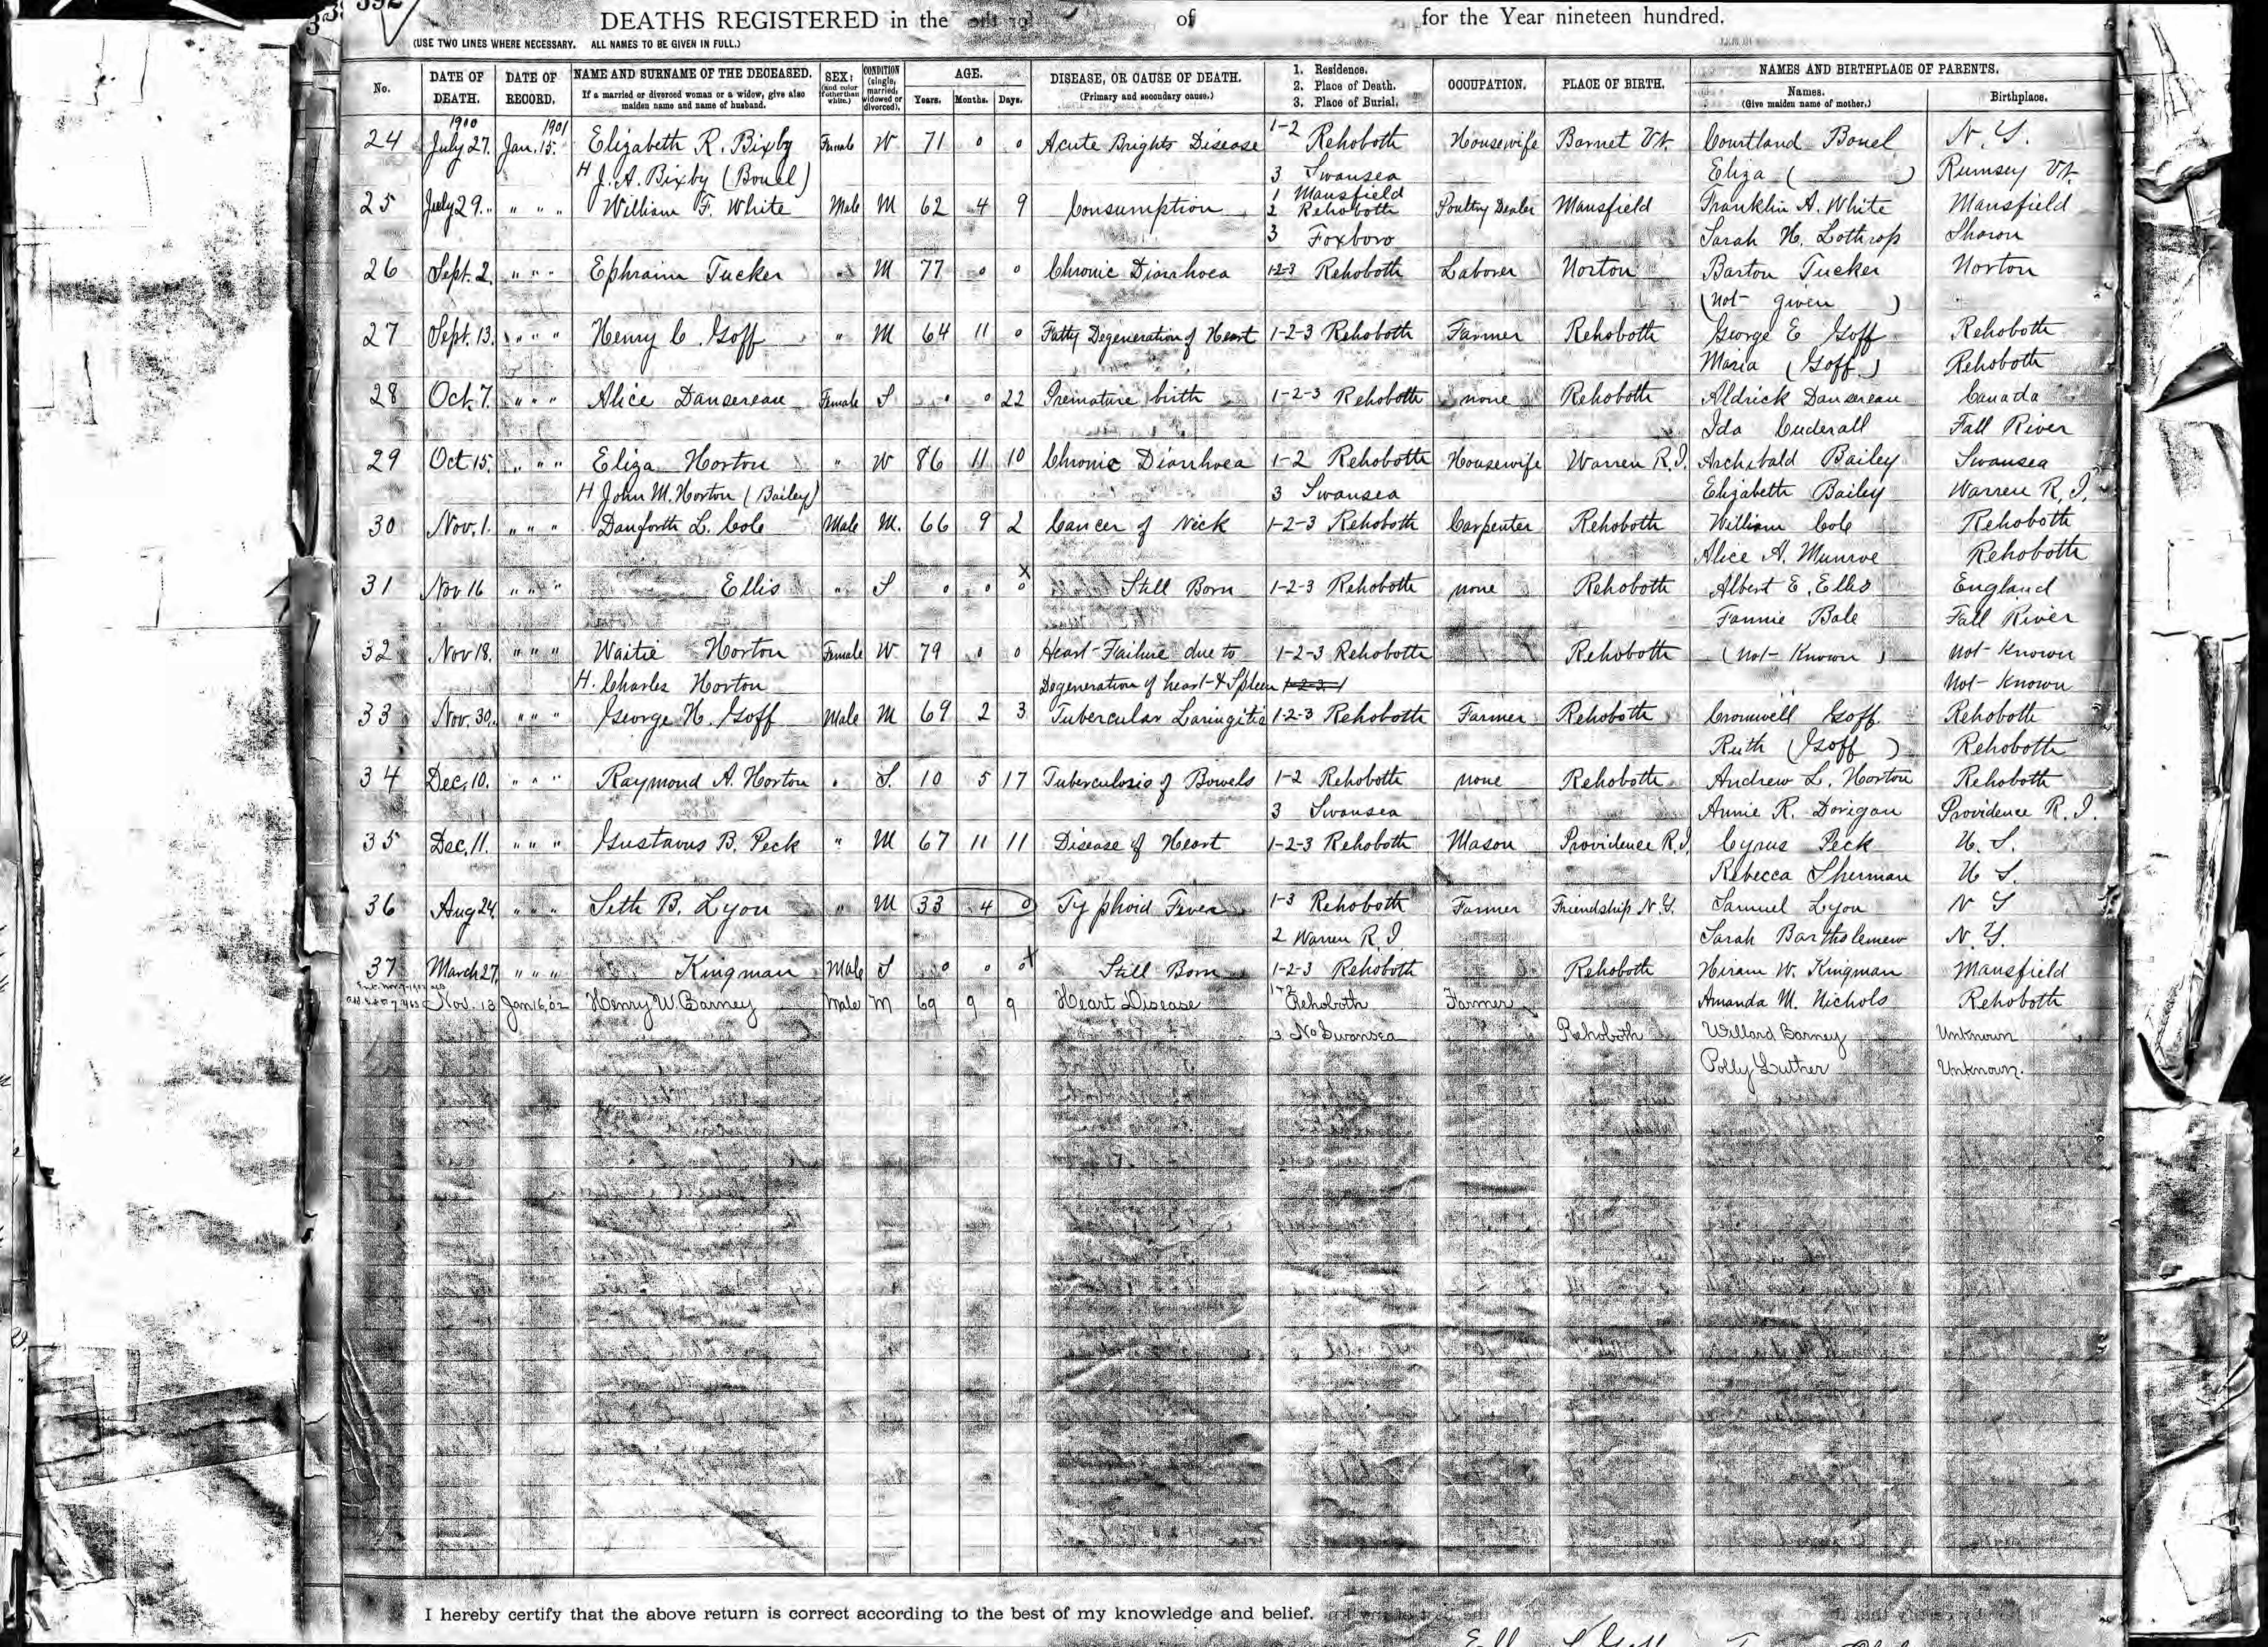 392
DEATHS REGISTERED in the of for the Year nineteen hundred.
(USE TWO LINES WHERE NECESSARY. ALL NAMES TO BE GIVEN IN FULL.)
No. DATE OF DEATH. DATE OF RECORD. NAME AND SURNAME OF THE DECEASED. If a married or divorced woman or a widow, give also maiden name and name of husband. SEX: (and color if other than white.) CONDITION (single, married, widowed or divorced). AGE. Years. Months. Days. DISEASE, OR CAUSE OF DEATH. (Primary and secondary cause.) 1. Residence. 2. Place of Death. 3. Place of Burial. OCCUPATION. PLACE OF BIRTH. NAMES AND BIRTHPLACE OF PARENTS. Names. (Give maiden name of mother.) Birthplace.
1900 1901
24 July 27. Jan. 15. Elizabeth R. Bixby Female W 71 0 0 Acute Brights Disease 1-2 Rehoboth Housewife Barnet Vt. Courtland Bonel N. Y.
H J. A. Bixby (Bonel) 3 Swansea Eliza ( ) Rumsey Vt.
25 July 29. " " " William F. White Male M 62 4 9 Consumption 1 Mansfield 2 Rehoboth Poultry Dealer Mansfield Franklin A. White Mansfield
3 Foxboro Sarah H. Lothrop Sharon
26 Sept. 2. " " " Ephraim Tucker " M 77 0 0 Chronic Diarrhoea 1-2-3 Rehoboth Laborer Norton Barton Tucker Norton
(not given )
27 Sept. 13. " " " Henry C. Goff " M 64 11 0 Fatty Degeneration of Heart 1-2-3 Rehoboth Farmer Rehoboth George E Goff Rehoboth
Maria (Goff) Rehoboth
28 Oct. 7. " " " Alice Dansereau Female S 0 0 22 Premature birth 1-2-3 Rehoboth none Rehoboth Aldrick Dansereau Canada
Ida Cuderall Fall River
29 Oct 15. " " " Eliza Horton " W 86 11 10 Chronic Diarrhoea 1-2 Rehoboth Housewife Warren R.I. Archibald Bailey Swansea
H John M. Horton (Bailey) 3 Swansea Elizabeth Bailey Warren R. I.
30 Nov. 1. " " " Danforth L. Cole Male M. 66 9 2 Cancer of Neck 1-2-3 Rehoboth Carpenter Rehoboth William Cole Rehoboth
Alice A. Munroe Rehoboth
31 Nov 16 " " " Ellis " S 0 0 x 0 Still Born 1-2-3 Rehoboth none Rehoboth Albert E. Ellis England
Fannie Bale Fall River
32 Nov 18. " " " Waitie Horton Female W 79 0 0 Heart-Failure due to 1-2-3 Rehoboth Rehoboth (Not-Known) Not-Known
H. Charles Horton Degeneration of heart & Spleen 1-2-3 Not-Known
33 Nov. 30. " " " George H. Goff Male M 69 2 3 Tubercular Laringitis 1-2-3 Rehoboth Farmer Rehoboth Cromwell Goff Rehoboth
Ruth (Goff ) Rehoboth
34 Dec. 10. " " " Raymond A. Horton " S. 10 5 17 Tuberculosis of Bowels 1-2 Rehoboth none Rehoboth Andrew L. Horton Rehoboth
3 Swansea Annie R. Dorigan Providence R. I.
35 Dec. 11. " " " Gustavus B. Peck " M 67 11 11 Disease of Heart 1-2-3 Rehoboth Mason Providence R.I. Cyrus Peck U. S.
Rebecca Sherman U S.
36 Aug 24. " " " Seth B. Lyon " M 33 4 0 Typhoid Fever 1-3 Rehoboth Farmer Friendship N.Y. Samuel Lyon N Y
2 Warren R. I. Sarah Bartholemew N. Y.
37 March 27. " " " Kingman Male S 0 0 0 x Still Born 1-2-3 Rehoboth Rehoboth Hiram W. Kingman Mansfield
Nov. 13 Jan 16, 02 Henry W. Barney Male M 69 9 9 Heart Disease 1+2 Rehoboth Farmer Amanda M. Nichols Rehoboth
3 No Swansea Rehoboth Willard Barney Unknown
Polly Luther Unknown.
I hereby certify that the above return is correct according to the best of my knowledge and belief.